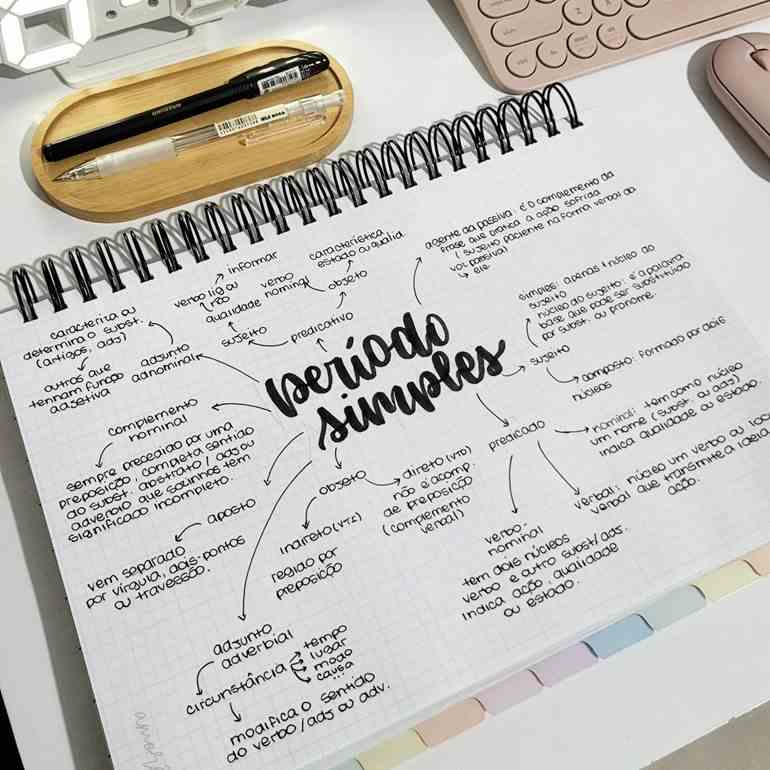 período
simples
agente da passiva: é o complemento da
frase que pratica a ação sofrida
(sujeito paciente na forma verbal da
voz passiva)
ele
sujeito
simples: apenas 1 núcleo do
sujeito
núcleo do sujeito: é a palavra
base que pode ser substituído
por subst. ou pronome.
composto: formado por dois
núcleos
predicado
nominal: têm como núcleo
um nome (subst. ou adj)
indica qualidade ou estado.
verbal: núcleo um verbo ou
verbal que transmite a ideia
ação.
verbo-
nominal
tem dois núcleos
verbo e outro subst/adj.
indica ação, qualidade
ou estado.
objeto
direto (VTD)
não é acomp.
de preposição
(complemento
verbal)
indireto (VTI)
regido por
preposição
adjunto
adverbial
circunstância
tempo
lugar
modo
causa
...
modifica o sentido
do verbo/adj ou adv.
aposto
vem separado
por vírgula, dois-pontos
ou travessão.
complemento
nominal
sempre precedido por uma
preposição, completa sentido
do subst. abstrato/adj ou
advérbio que sozinhos têm
significado incompleto.
adjunto
adnominal
caracteriza ou
determina o subst.
(artigos, adj)
outros que
tenham função
adjetiva
predicativo
sujeito
qualidade
verbo lig ou
não
informar
objeto
verbo
nominal
característica
estado ou qualid.